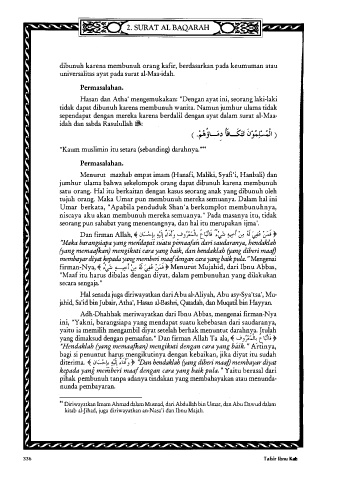 2. SURAT AL BAQARAH
dibunuh karena membunuh orang kafir, berdasarkan pada keumuman atau
universalitas ayat pada surat al-Maa-idah.
Permasalahan.
Hasan dan Atha' mengemukakan: "Dengan ayat ini, seorang laki-laki
tidak dapat dibunuh karena membunuh wanita. Namun jumhur ulama tidak
sependapat dengan mereka karena berdalil dengan ayat dalam surat al-Maa-
idah dan sabda Rasulullah ﷺ:
( الْمُسْلِمُوْنَ تَتَكَـافَأُ دِمَـاؤُهُمْ. )
"Kaum muslimin itu setara (sebanding) darahnya."
Permasalahan.
Menurut mazhab empat imam (Hanafi, Maliki, Syafi'i, Hanbali) dan
jumhur ulama bahwa sekelompok orang dapat dibunuh karena membunuh
satu orang. Hal itu berkaitan dengan kasus seorang anak yang dibunuh oleh
tujuh orang. Maka Umar pun membunuh mereka semuanya. Dalam hal ini
Umar berkata, "Apabila penduduk Shan'a berkomplot membunuhnya,
niscaya aku akan membunuh mereka semuanya." Pada masanya itu, tidak
seorang pun sahabat yang menentangnya, dan hal itu merupakan ijma'.
Dan firman Allah, ﴿ فَمَنْ عُفِيَ لَهُ مِنْ أَخِيهِ شَيْءٌ فَاتِّبَاعٌ بِالْمَعْرُوفِ وَأَدَاءٌ إِلَيْهِ بِإِحْسَانٍ ﴾
"Maka barangsiapa yang mendapat suatu pemaafan dari saudaranya, hendaklah
(yang memaafkan) mengikuti cara yang baik, dan hendaklah (yang diberi maaf)
membayar diyat kepada yang memberi maaf dengan cara yang baik pula." Mengenai
firman-Nya, ﴿ فَمَنْ عُفِيَ لَهُ مِنْ أَخِيـهِ شَيْءٌ ﴾ Menurut Mujahid, dari Ibnu Abbas,
"Maaf itu harus dibalas dengan diyat, dalam pembunuhan yang dilakukan
secara sengaja."
Hal senada juga diriwayatkan dari Abu al-Aliyah, Abu asy-Sya'tsa', Mu-
jahid, Sa'id bin Jubair, Atha', Hasan al-Bashri, Qatadah, dan Muqatil bin Hayyan.
Adh-Dhahhak meriwayatkan dari Ibnu Abbas, mengenai firman-Nya
ini, "Yakni, barangsiapa yang mendapat suatu kebebasan dari saudaranya,
yaitu ia memilih mengambil diyat setelah berhak menuntut darahnya. Itulah
yang dimaksud dengan pemaafan." Dan firman Allah Ta'ala, ﴿ فَاتِّبَاعٌ بِالْمَعْرُوفِ ﴾
"Hendaklah (yang memaafkan) mengikuti dengan cara yang baik." Artinya,
bagi si penuntut harus mengikutinya dengan kebaikan, jika diyat itu sudah
diterima. ﴿ وَأَدَاءٌ إِلَيْهِ بِإِحْسَانٍ ﴾ "Dan hendaklah (yang diberi maaf) membayar diyat
kepada yang memberi maaf dengan cara yang baik pula." Yaitu berasal dari
pihak pembunuh tanpa adanya tindakan yang membahayakan atau menunda-
nunda pembayaran.
Diriwayatkan Imam Ahmad dalam Musnad, dari Abdullah bin Umar, dan Abu Dawud dalam
kitab al-Jihad, juga diriwayatkan an-Nasa'i dan Ibnu Majah.
336
Tafsir Ibnu Katsir